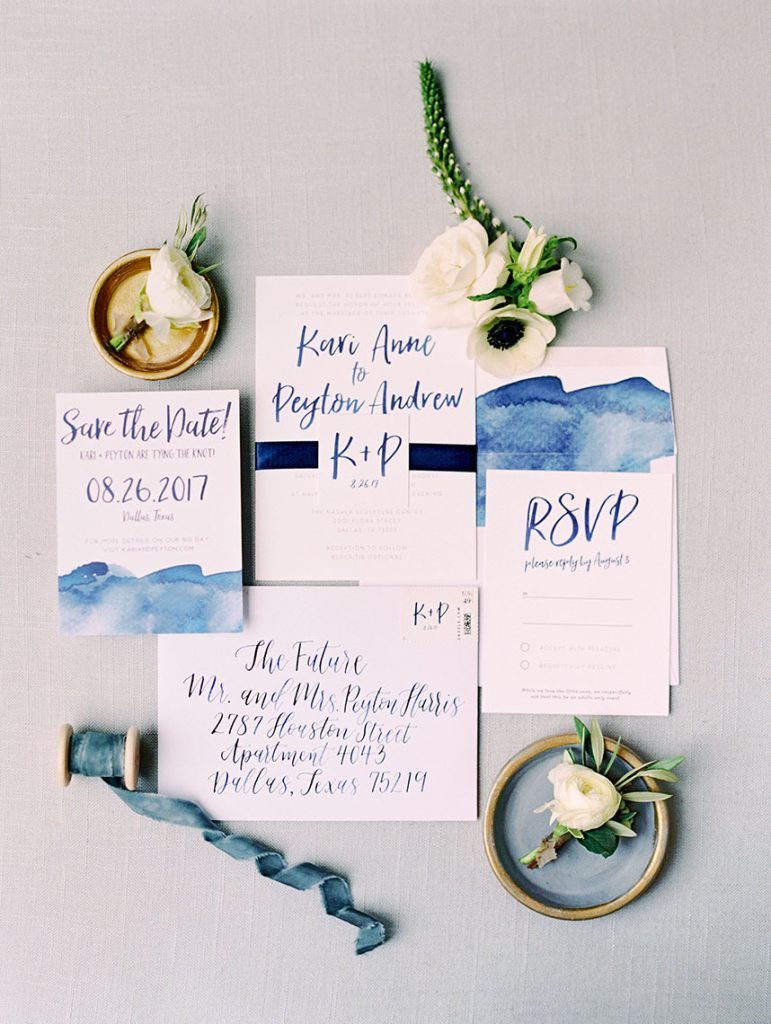 Save the Date!
KARI + PEYTON ARE TYING THE KNOT!
08.26.2017
Dallas, Texas
FOR MORE DETAILS ON OUR BIG DAY,
VISIT KARIANDPEYTON.COM
MR. AND MRS. ROBERT EDWARD
REQUEST THE HONOR OF YOUR
AT THE MARRIAGE OF THEIR DAUGHTER
Kari Anne
to
Peyton Andrew
K+P
8.26.17
SATURDAY
AT HALF
EVENING
THE NASHER SCULPTURE CENTER
2001 FLORA STREET
DALLAS, TX 75201
RECEPTION TO FOLLOW
BLACK TIE OPTIONAL
RSVP
please reply by August 3
M
ACCEPT WITH PLEASURE
REGRETFULLY DECLINE
While we love the little ones, we respectfully
ask that this be an adults only event
K+P
8.26.17
49
ZAZZLE.COM
The Future
Mr. and Mrs. Peyton Harris
2787 Houston Street
Apartment 4043
Dallas, Texas 75219